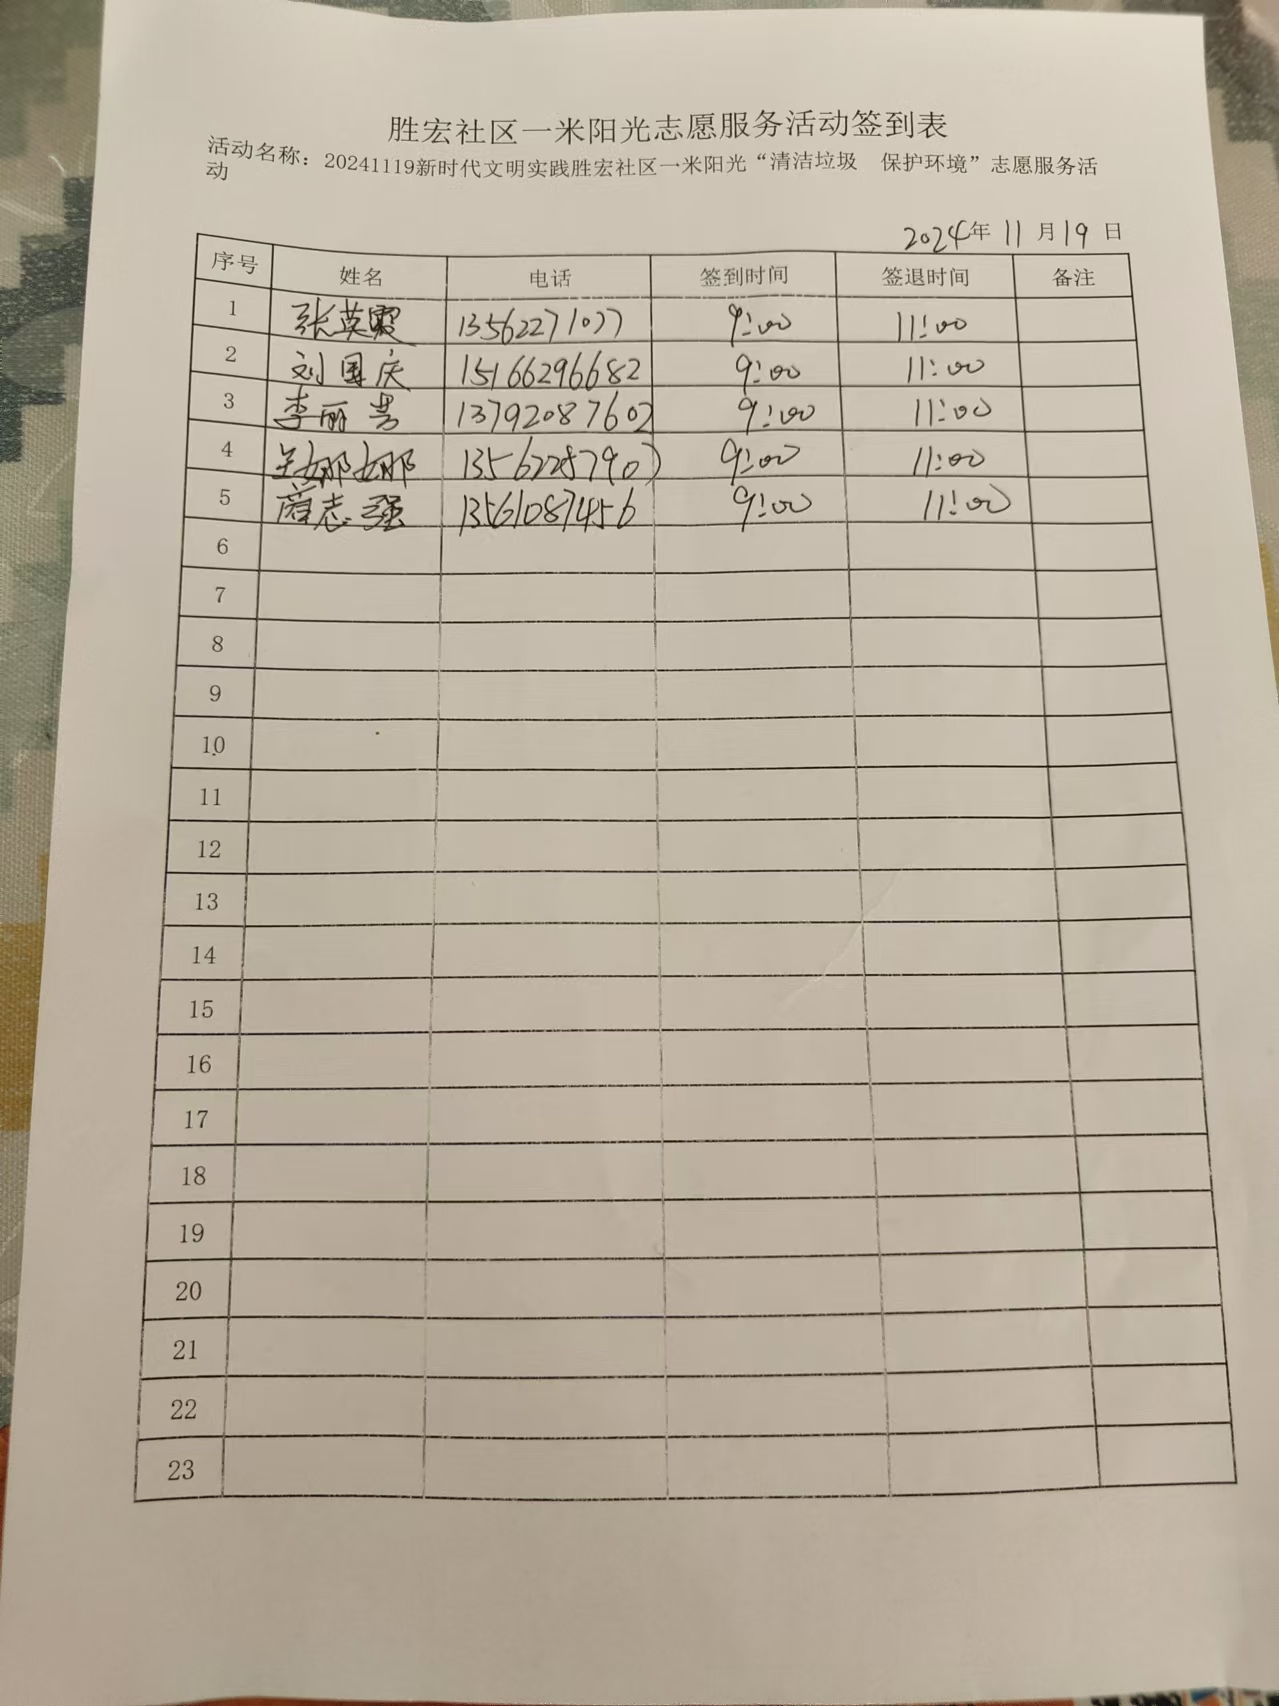 胜宏社区一米阳光志愿服务活动签到表
活动名称：20241119新时代文明实践胜宏社区一米阳光“清洁垃圾　保护环境”志愿服务活
动
2024年 11 月 19 日
序号 姓名 电话 签到时间 签退时间 备注
1 张英霞 13562271077 9:00 11:00
2 刘国庆 15166296682 9:00 11:00
3 李丽芸 13792087602 9:00 11:00
4 娜娜 13562287907 9:00 11:00
5 志强 13561087456 9:00 11:00
6
7
8
9
10
11
12
13
14
15
16
17
18
19
20
21
22
23